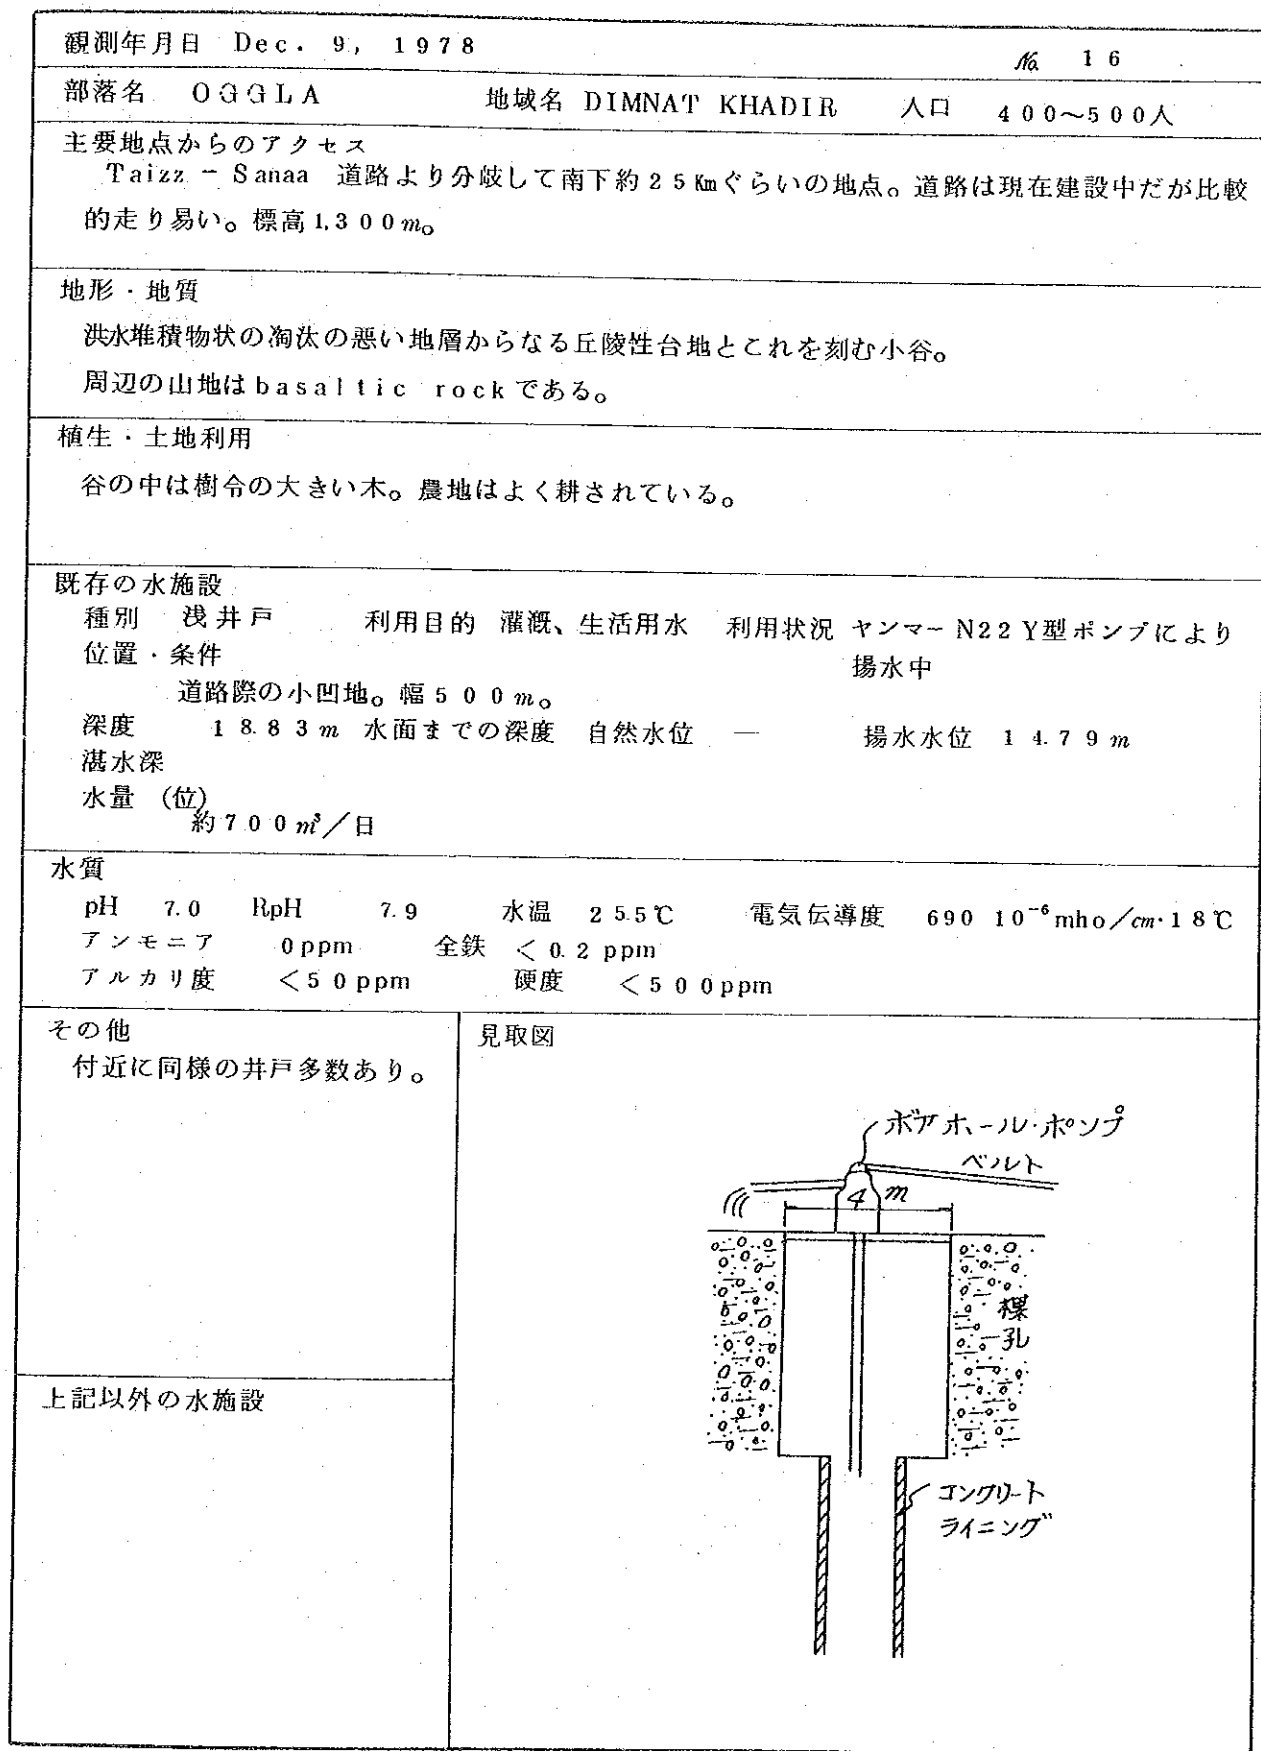 観測年月日 Dec. 9, 1978 № 16
部落名 OGGLA 地域名 DIMNAT KHADIR 人口 400~500人
主要地点からのアクセス
Taizz - Sanaa 道路より分岐して南下約25Kmぐらいの地点。道路は現在建設中だが比較
的走り易い。標高1,300m。
地形・地質
洪水堆積物状の淘汰の悪い地層からなる丘陵性台地とこれを刻む小谷。
周辺の山地はbasaltic rockである。
植生・土地利用
谷の中は樹令の大きい木。農地はよく耕されている。
既存の水施設
種別 浅井戸 利用目的 灌漑、生活用水 利用状況 ヤンマーN22Y型ポンプにより
位置・条件 揚水中
道路際の小凹地。幅500m。
深度 18.83m 水面までの深度 自然水位 — 揚水水位 14.79m
湛水深
水量 (位)
約700m³/日
水質
pH 7.0 RpH 7.9 水温 25.5℃ 電気伝導度 690 10⁻⁶mho/cm·18℃
アンモニア 0ppm 全鉄 <0.2ppm
アルカリ度 <50ppm 硬度 <500ppm
その他 見取図
付近に同様の井戸多数あり。
ボアホール・ポンプ
ベルト
4m
裸
孔
上記以外の水施設
コンクリート
ライニング